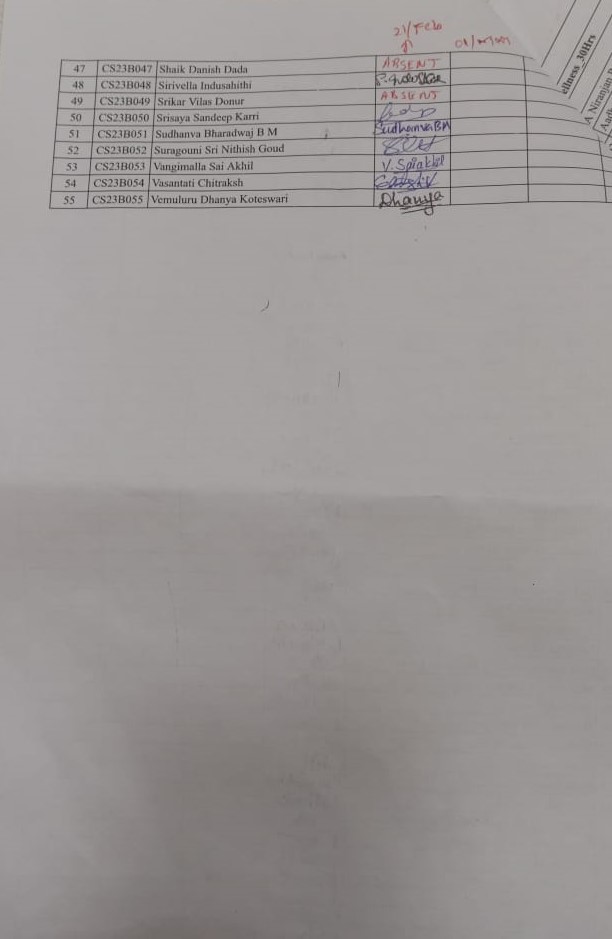 21/Feb
01/mar
ellness_30Hrs
A Niranjan
47 CS23B047 Shaik Danish Dada ABSENT
48 CS23B048 Sirivella Indusahithi
49 CS23B049 Srikar Vilas Donur ABSENT
50 CS23B050 Srisaya Sandeep Karri
51 CS23B051 Sudhanva Bharadwaj B M SudhanvaBM
52 CS23B052 Suragouni Sri Nithish Goud
53 CS23B053 Vangimalla Sai Akhil V. Sai akhil
54 CS23B054 Vasantati Chitraksh
55 CS23B055 Vemuluru Dhanya Koteswari Dhanya